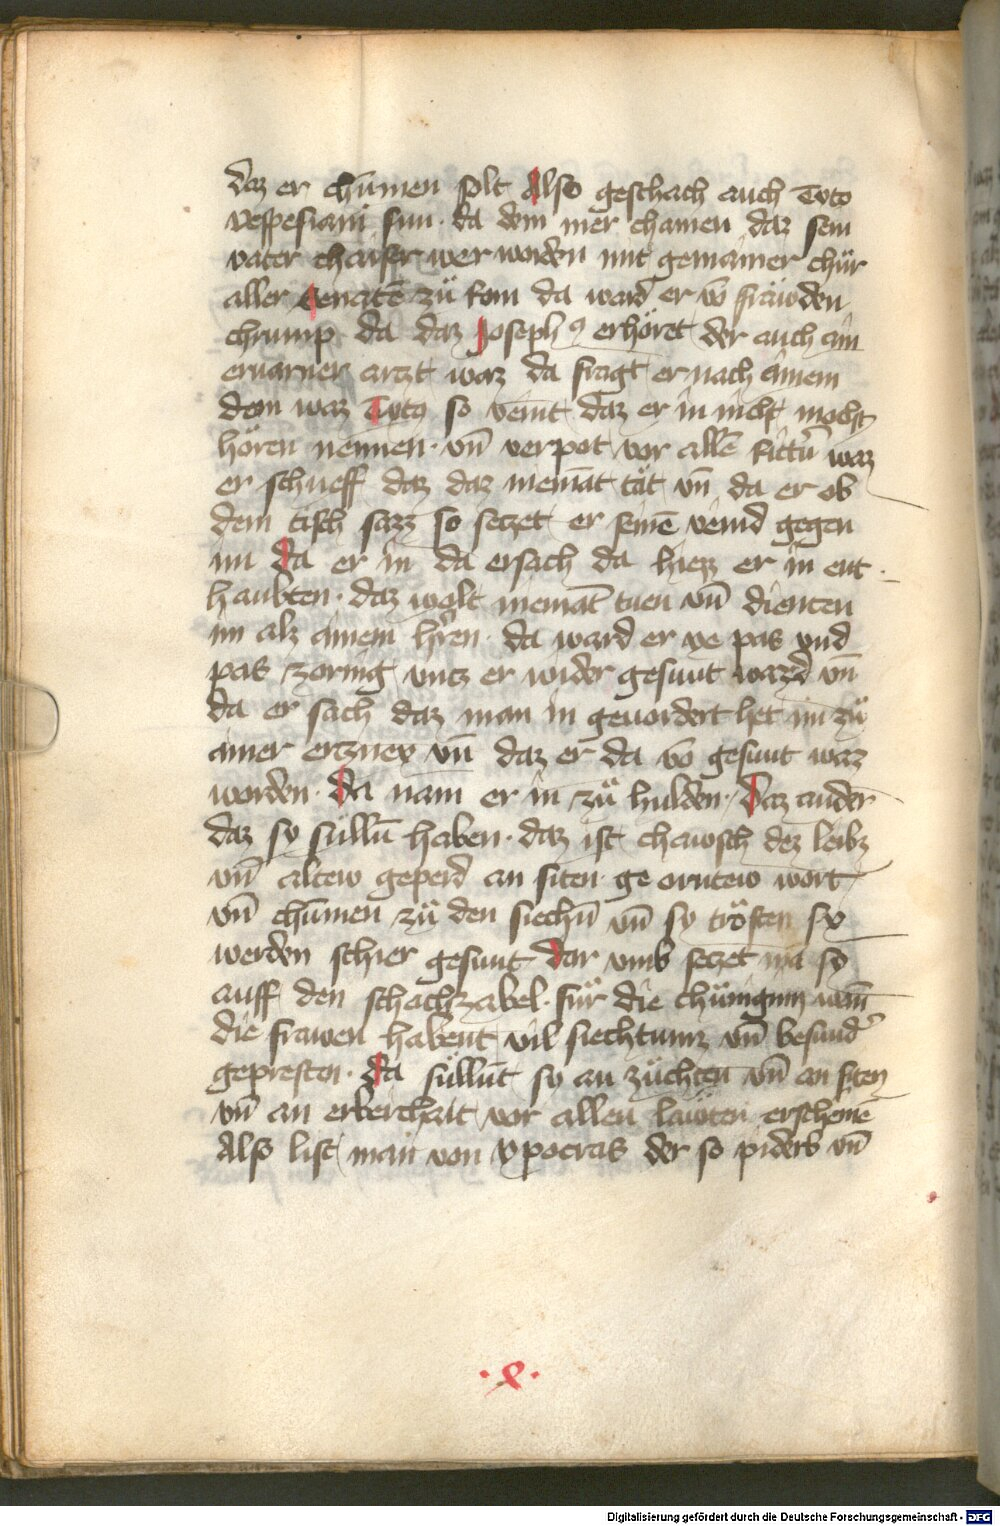 daz er chūmen solt Also geschach auch Tyto
vespesiani sun · da dem mer chamen daz sein
vater chaiser wer worden mit gemainer chür
aller Senatē zů Rom da ward er vō fräwden
chrump da daz Joseph⁹ erhöret der auch ain
eruarner arczt waz da fragt er nach ainem
dem waz Tyt⁹ so veint daz er in nicht mocht
hören nennen · vn̄ verpot vor allē rittn̄ waz
er schueff daz daz niemāt tät vn̄ da er ob
dem tisch sazz so seczet er seinē veind gegen
im da er in da ersach da hiezz er in ent
haubten · daz wolt niemāt tuen vn̄ dienten
im alz ainem hr̄ren · da ward er ye pas vnd
pas zornig vntz er wider gesunt ward vn̄
da er sach daz man in geuordert het im zů
ainer erczney vn̄ daz er da vō gesunt waz
worden · da nam er in zů hulden · daz ander
daz sy sülln̄ haben · daz ist chawsch dez leibz
vn̄ altew geperd an siten ge orntew wort
vn̄ chūmen zů den siechn̄ vn̄ sy trösten sy
werden schier gesunt dar vmb seczet ma so
auff den schachzabel · für die chüniginn wān
die frawen habent vil siechtumz vn̄ besund̾
gepresten · da süllnt sy an züchten vn̄ an siten
vn̄ an erberchait vor allen lawten erscheinē
Also list man von ypocras der so piderb vn̄
· x ·
Digitalisierung gefördert durch die Deutsche Forschungsgemeinschaft - DFG